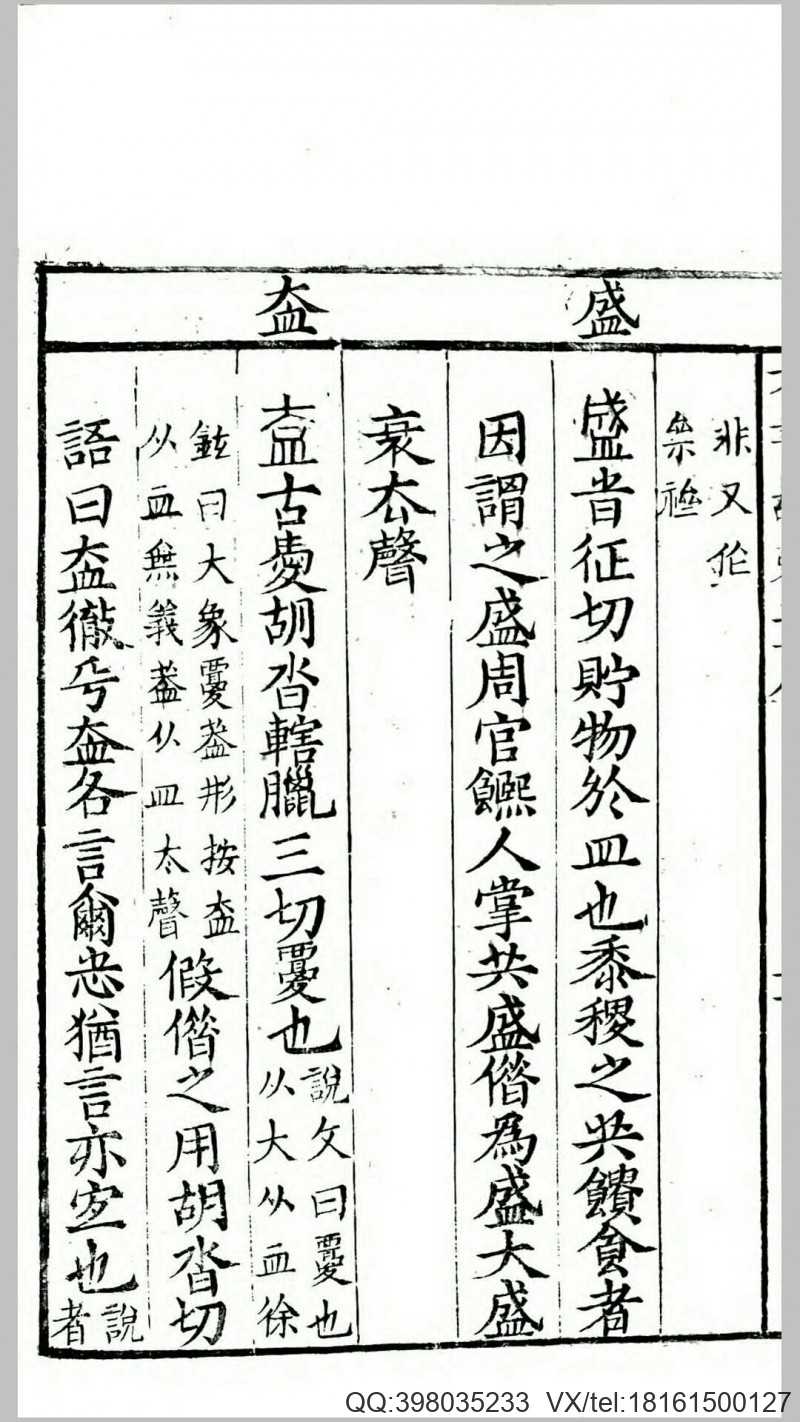 盛
盇
非又作
祭禮
盛昔征切貯物於皿也黍稷之共饋食者
因謂之盛周官饎人掌共盛借為盛大盛
衰夳聲
盇古憂胡沓轄臘三切覂也
說文曰覂也
从大从血徐
鉉曰大象覂葢形按盇
从血無義葢从皿太聲
假借之用胡沓切
語曰盇徹兮盇各言爾志猶言亦宐也
說
者
QQ:398035233 VX/tel:18161500127